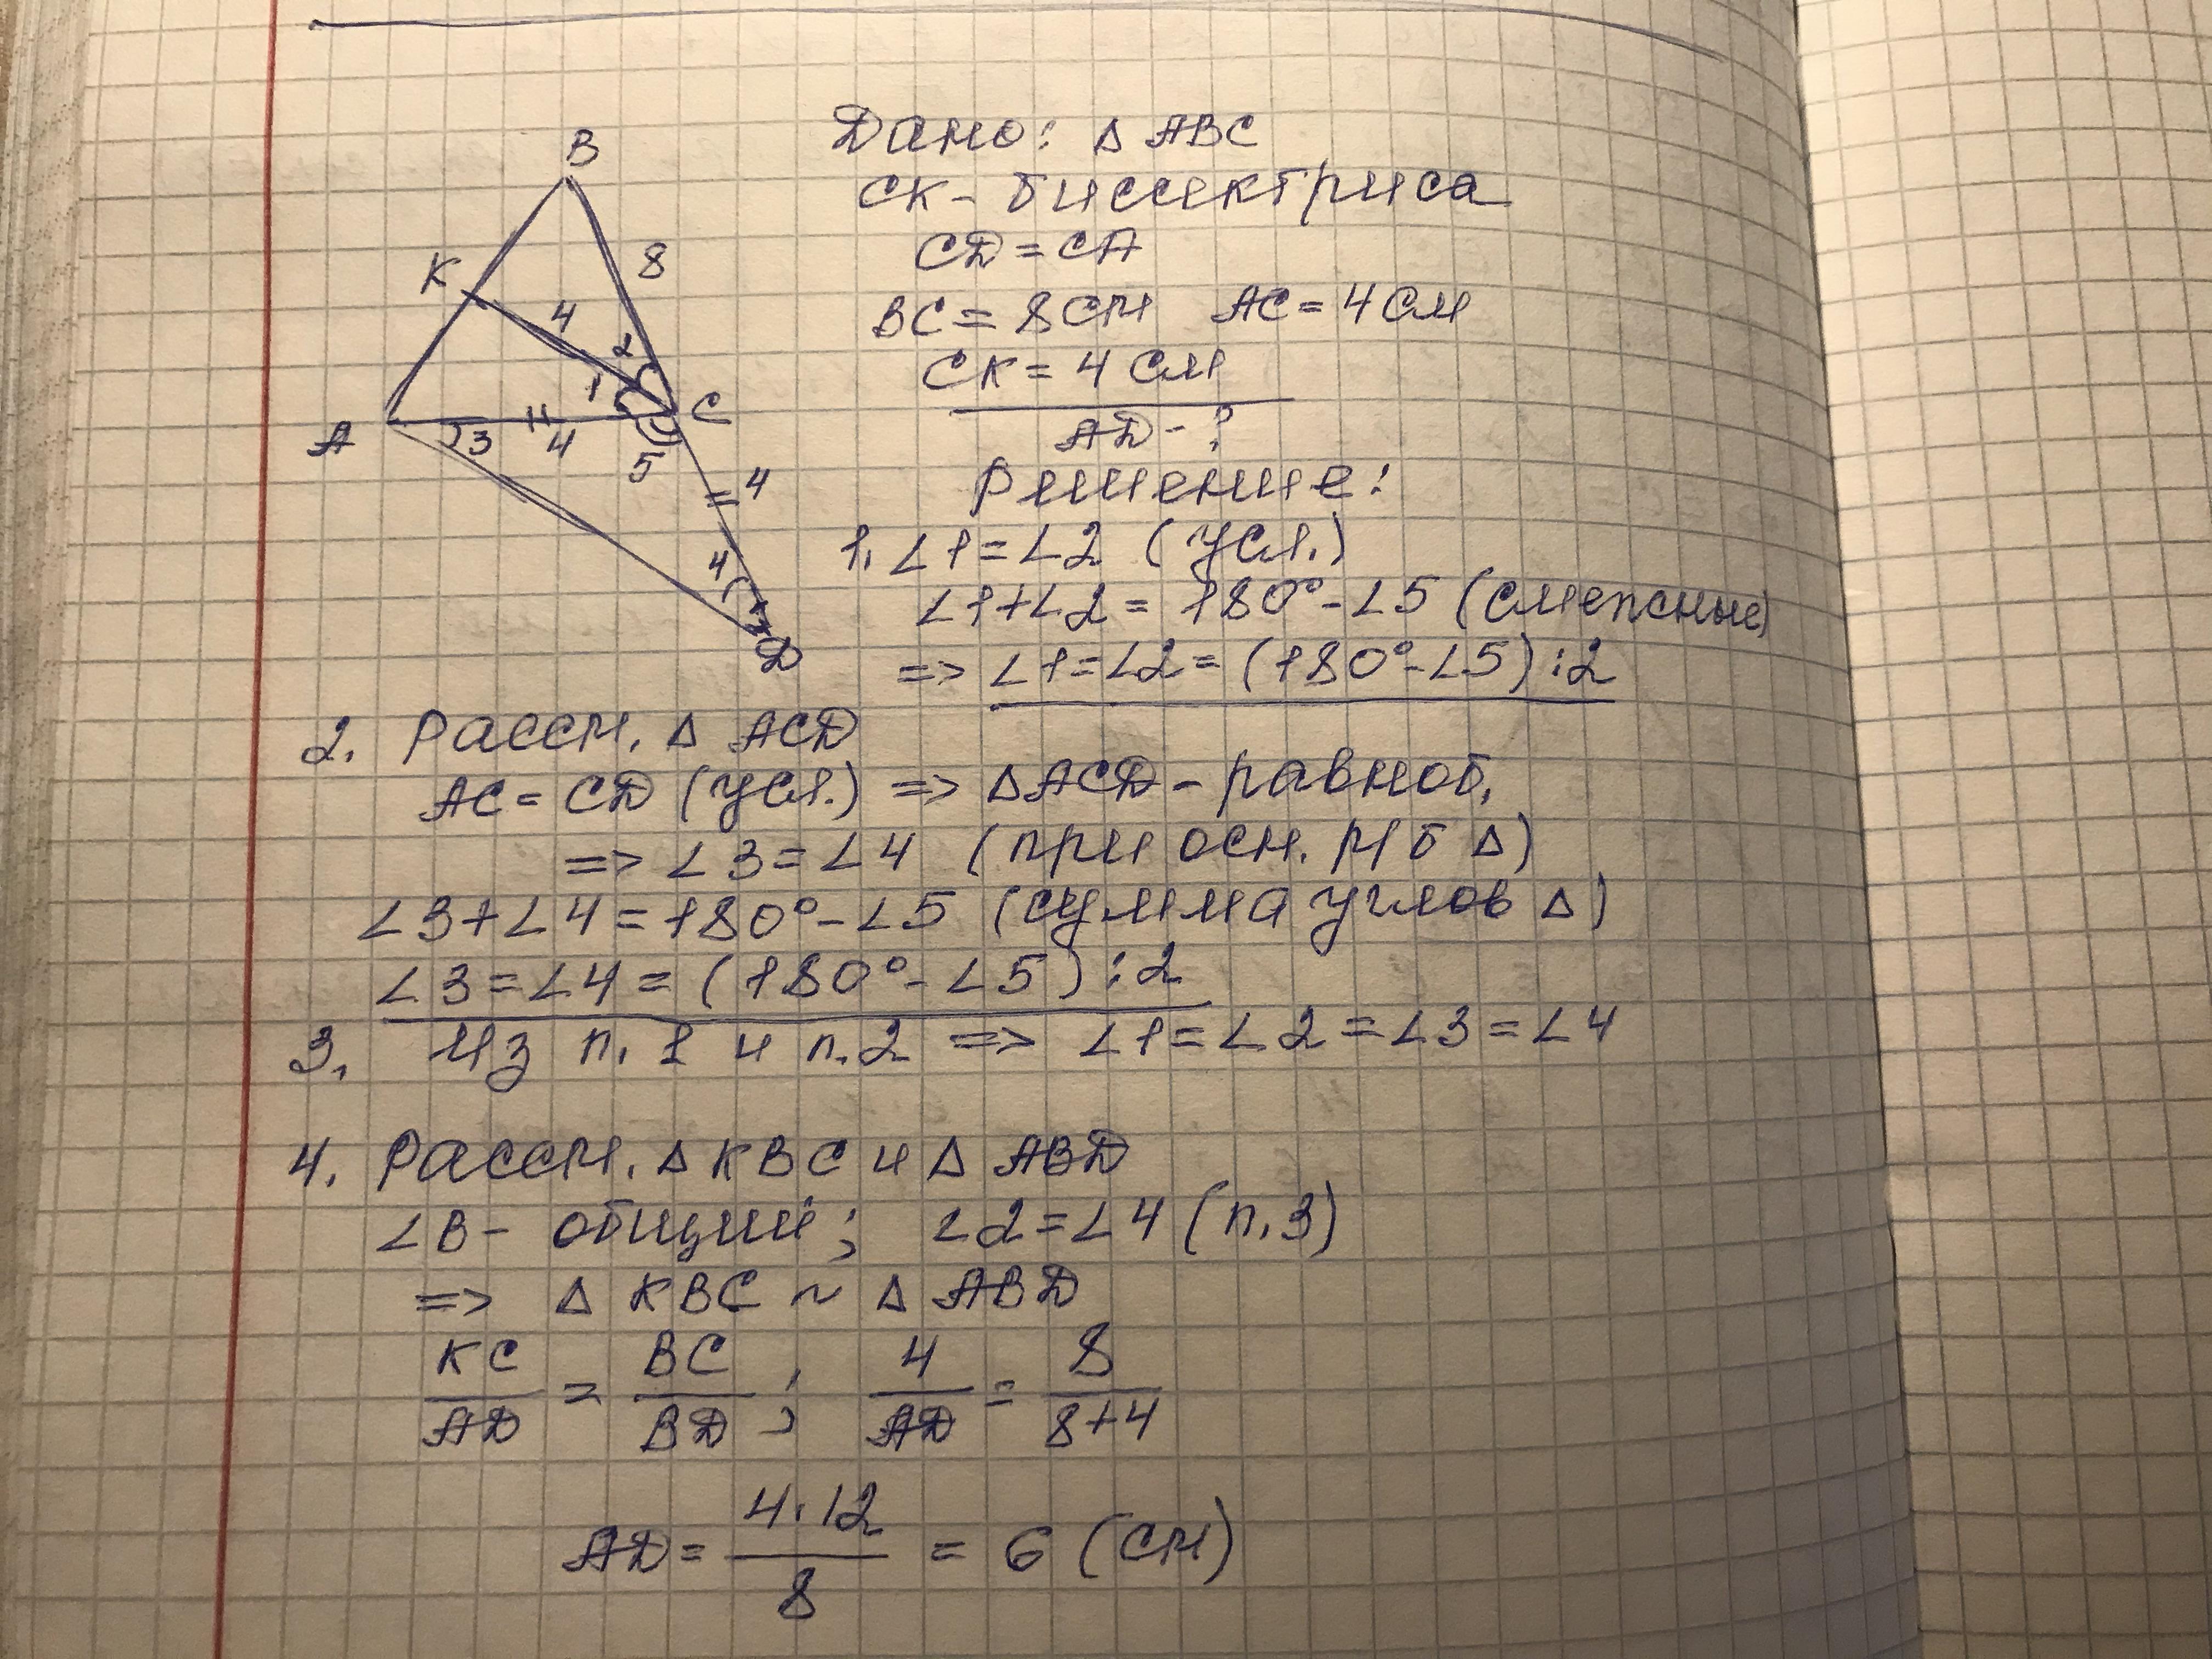 B
K
8
4
2
1
C
A
3
4
5
4
4
D
Дано: Δ ABC
CK - биссектриса
CD = CA
BC = 8 см AC = 4 см
CK = 4 см
AD - ?
Решение:
1. ∠1 = ∠2 (усл.)
∠1+∠2 = 180° - ∠5 (смежные)
=> ∠1=∠2 = (180° - ∠5) : 2
2. Рассм. Δ ACD
AC = CD (усл.) => ΔACD - равноб.
=> ∠3 = ∠4 (при осн. р/б Δ)
∠3+∠4 = 180° - ∠5 (сумма углов Δ)
∠3 = ∠4 = (180° - ∠5) : 2
3. Из п. 1 и п. 2 => ∠1 = ∠2 = ∠3 = ∠4
4. Рассм. Δ KBC и Δ ABD
∠B - общий; ∠2 = ∠4 (п. 3)
=> Δ KBC ~ Δ ABD
KC/AD = BC/BD ; 4/AD = 8/8+4
AD = 4·12/8 = 6 (см)